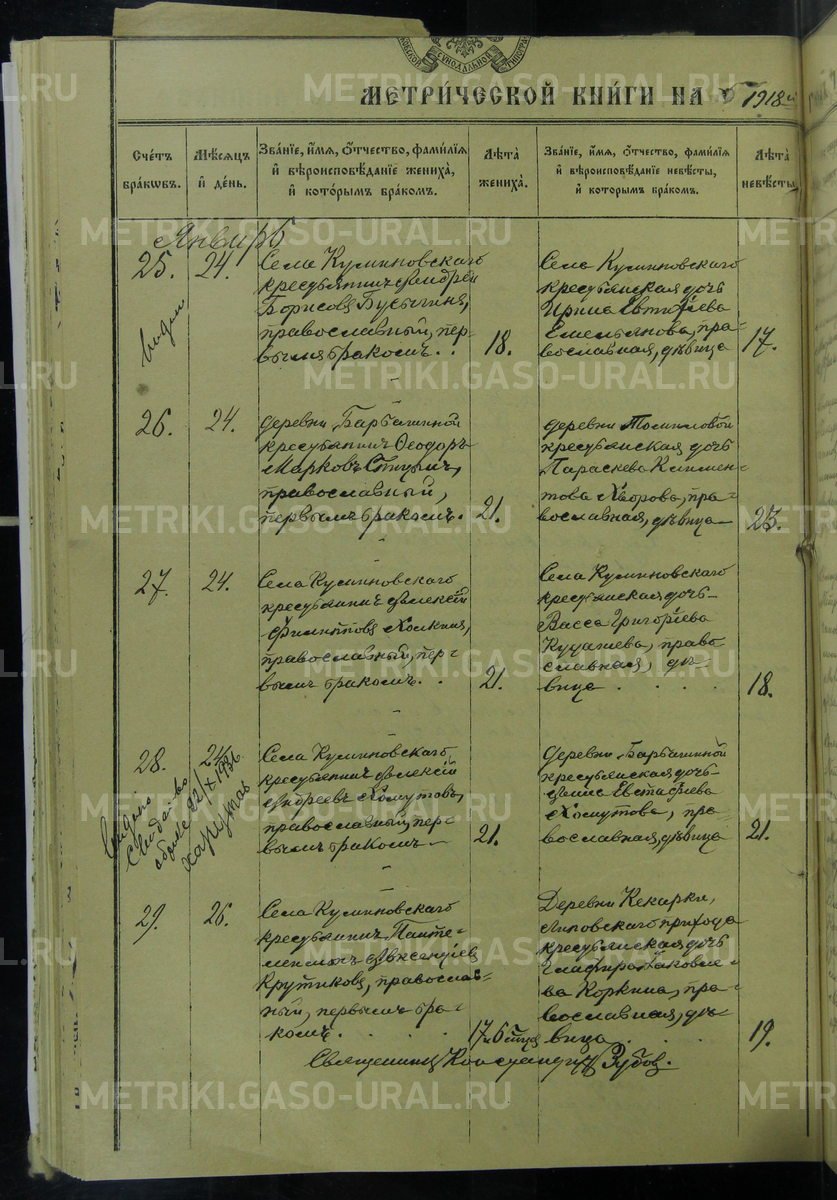 СѴНОДАЛЬНОЙ
МЕТРИЧЕСКОЙ КНИГИ НА 1918й
Счетъ браковъ.
Мѣсяцъ и день.
Званіе, имя, отчество, фамилія и вѣроисповѣданіе жениха, и которымъ бракомъ.
Лѣта жениха.
Званіе, имя, отчество, фамилія и вѣроисповѣданіе невѣсты, и которымъ бракомъ.
Лѣта невѣсты.
Январь
25.
24.
Села
крестьянинъ Андрей
Борисовъ
православный, пер-
вымъ бракомъ..
18.
Села
крестьянская дочь
Ирина
Емельянова, пра-
вославная, дѣвица
17.
26.
24.
деревни Барбашиной
крестьянинъ Ѳеодоръ
Марковъ
православный,
первымъ бракомъ.
21.
деревни Томиловой
крестьянская дочь
Параскева Климен-
това Хворова, пра-
вославная, дѣвица
23.
27.
24.
Села
крестьянинъ Алексѣй
Филипповъ
православный, пер-
вымъ бракомъ..
21.
Села
крестьянская дочь
Васса Григоріева
православная, дѣ-
вица
18.
28.
24
Села
крестьянинъ Алексѣй
Андреевъ Хомутовъ,
православный, пер-
вымъ бракомъ
21.
деревни Барбашиной
крестьянская дочь
Евстафіева
Хомутова, пра-
вославная, дѣвица
21.
22/X 1936
29.
26.
Села
крестьянинъ Панте-
леимонъ Авксентіевъ
Крутиковъ, православ-
ный, первымъ бра-
комъ.
17 и 6
Деревни Кекарки,
Липовскаго прихода
крестьянская дочь
Глафира Іаковле-
ва Коркина, пра-
вославная, дѣ-
вица
19.
Священникъ Константинъ Зубовъ.
METRIKI.GASO-URAL.RU